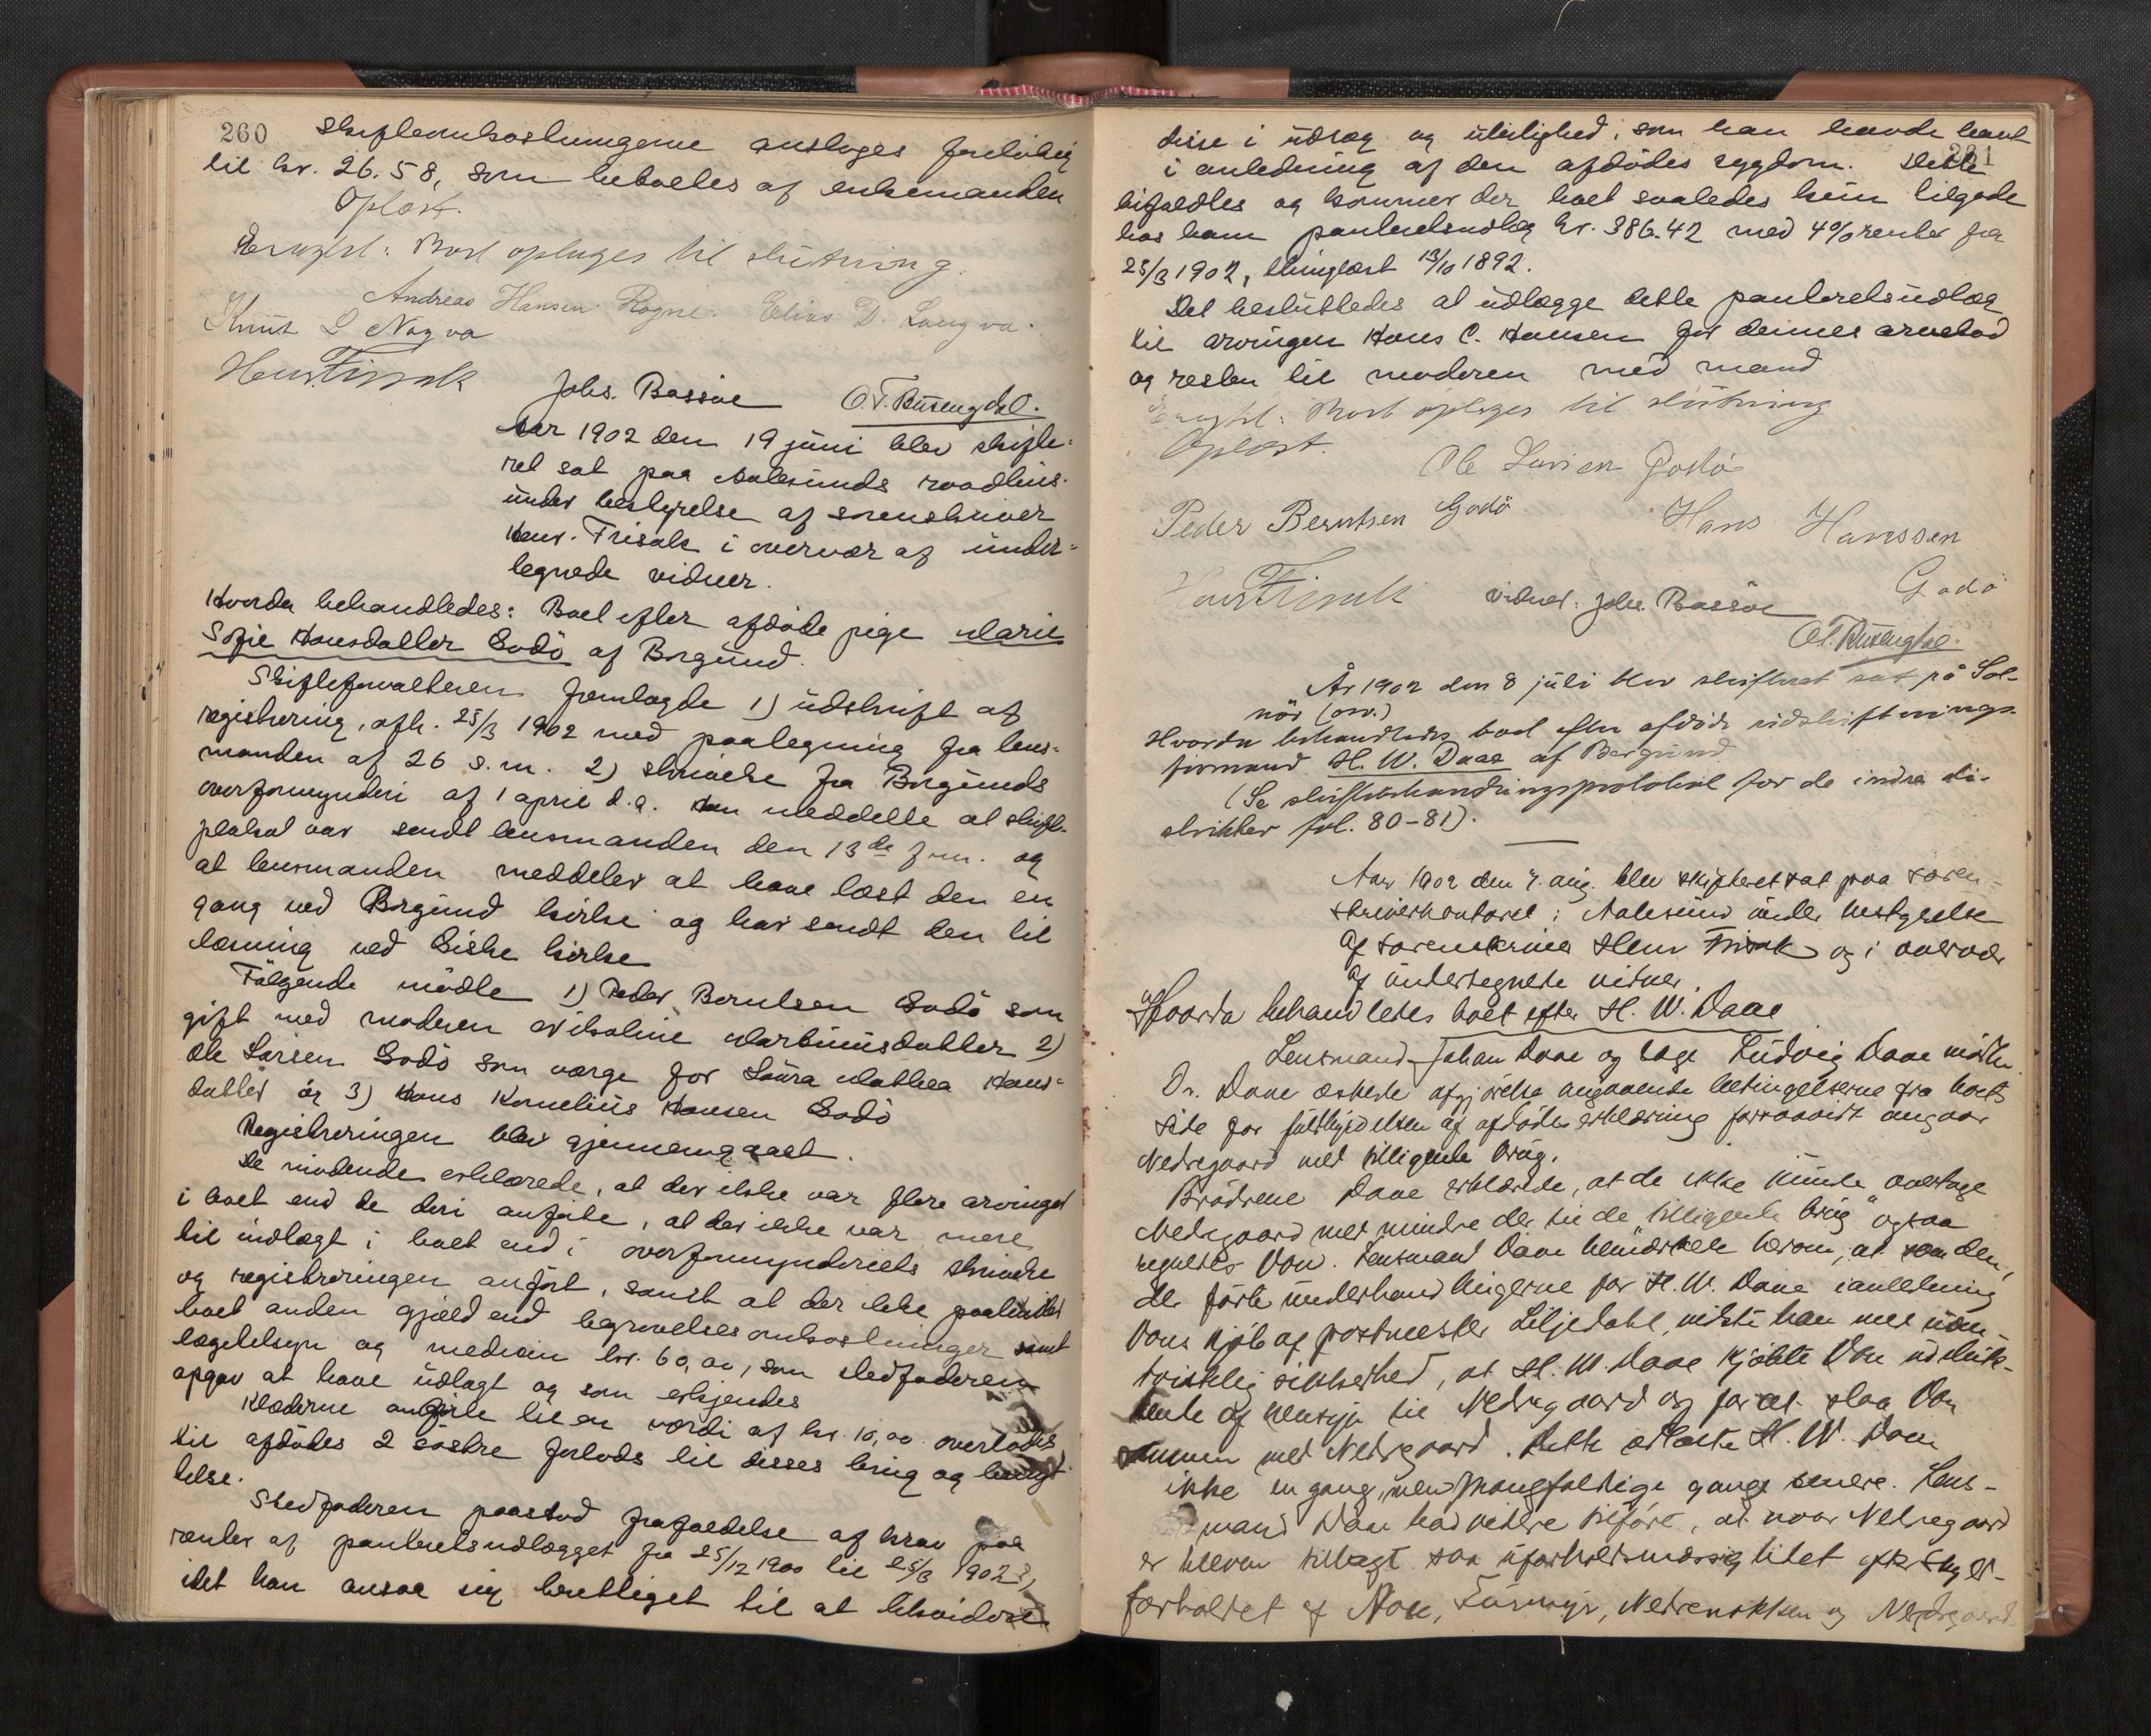 260
Skifteomkostningerne ansloges foreløbig
til kr. 26.58, som betaltes af enkemanden
Oplæst.
Eragtet: Boet optages til slutning.
Andreas Hansen Rogne. Elias D. Longva.
Knut L Nogva
Henr Finsak
Johs. Bassøe O. T. Busengdal.
Aar 1902 den 19 juni blev skifte-
ret sat paa Aalesunds raadhus
under bestyrelse af sorenskriver
Henr. Frisak i overvær af under-
tegnede vidner.
Hvorda behandledes: Boet efter afdøde pige Marie
Sofie Hansdatter Godø af Borgund.
Skifteforvalteren fremlagde 1) udskrift af
registrering, afh. 25/3 1902 med paategning fra lens-
manden af 26 s.m. 2) skrivelse fra Borgunds
overformynderi af 1 april d.a. Han meddelte at skifte-
plakat var sendt lensmanden den 13de f.m. og
at lensmanden meddeler at have læst den en
gang ved Borgund kirke og har sendt den til
læsning ved Giske kirke
Følgende mødte 1) Peder Berntsen Godø som
gift med moderen Nikoline Martinusdatter 2)
Ole Larsen Godø som værge for Laura Mathea Hans-
datter og 3) Hans Kornelius Hansen Godø
Registreringen blev gjennemgaaet.
De mødende erklærede, at der ikke var flere arvinger
i boet end de deri anførte, at der ikke var mere
til indlagt i boet end i overformynderiets skrivelse
og registreringen anført, samt at der ikke paahviler
boet anden gjæld end begravelsesomkostninger samt
lægetilsyn og medicin kr. 60,00, som stedfaderen
opgav at have udlagt og som erkjendes
Klæderne anførte til en værdi af kr. 10,00 overlodes
til afdødes 2 søstre forlods til disses brug og benyt-
telse.
Stedfaderen paastod frafaldelse af krav paa
renter af panteretsudlægget fra 25/12 1900 til 25/3 1902,
idet han ansaa sig berettiget til at likvidere
261
disse i udlæg og uleilighed, som han havde havt
i anledning af den afdødes sygdom. Dette
bifaldtes og kommer der boet saaledes kun tilgode
hos ham panteretsudlæg kr. 386.42 med 4% renter fra
25/3 1902, thinglæst 13/10 1892.
Det besluttedes at udlægge dette panteretsudlæg
til arvingen Hans C. Hansen for dennes arvelod
og resten til moderen med mand
Eragtet: Boet optages til slutning
Oplæst.
Ole Larsen Godø
Peder Berntsen Godø Hans Hanssen
Godø
Henr Frisak vidner: Johs. Bassøe
O.T. Busengdal.
År 1902 den 8 juli blev skifteret sat på Sol-
nør (osv.)
Hvorda behandledes boet efter afdøde udskiftnings-
formand H. W. Daae af Borgund
(Se skiftebehandlingsprotokol for de indre di-
strikter fol. 80-81).
Aar 1902 den 7. aug. blev skifteret sat paa soren-
skriverkontoret i Aalesund under bestyrelse
af sorenskriver Henr Frisak og i overvær
af undertegnede vidner.
Hvorda behandledes boet efter H. W. Daae
Lensmand Johan Daae og læge Ludvig Daae mødte.
Dr. Daae æskede afgjørelse angaaende betingelserne fra boets
side for fuldbyrdelsen af afdødes erklæring forsaavidt angaar
Nedregaard med tilligende brug.
Brødrene Daae erklærede, at de ikke kunde overtage
Nedregaard med mindre der til de "tilligende brug" ogsaa
regnedes Von. Lensmand Daae bemærkede herom, at som den,
der førte underhandlingerne for H. W. Daae i anledning
Vons kjøb af postmester Liljedahl, vidste han med uom-
tvistelig sikkerhed, at H. W. Daae kjøbte Von udeluk-
kende af hensyn til Nedregaard og for at slaa Von
sammen med Nedregaard. Dette erklærte H. W. Daae
ikke en gang, men mangfoldige gange senere. Lens-
mand Daae had videre tilføre, at naar Nedregaard
er bleven tillagt saa uforholdsmæssig lidet efter skyld-
forholdet af Nose, Furmyr, Nedrenakken og Nedregaard